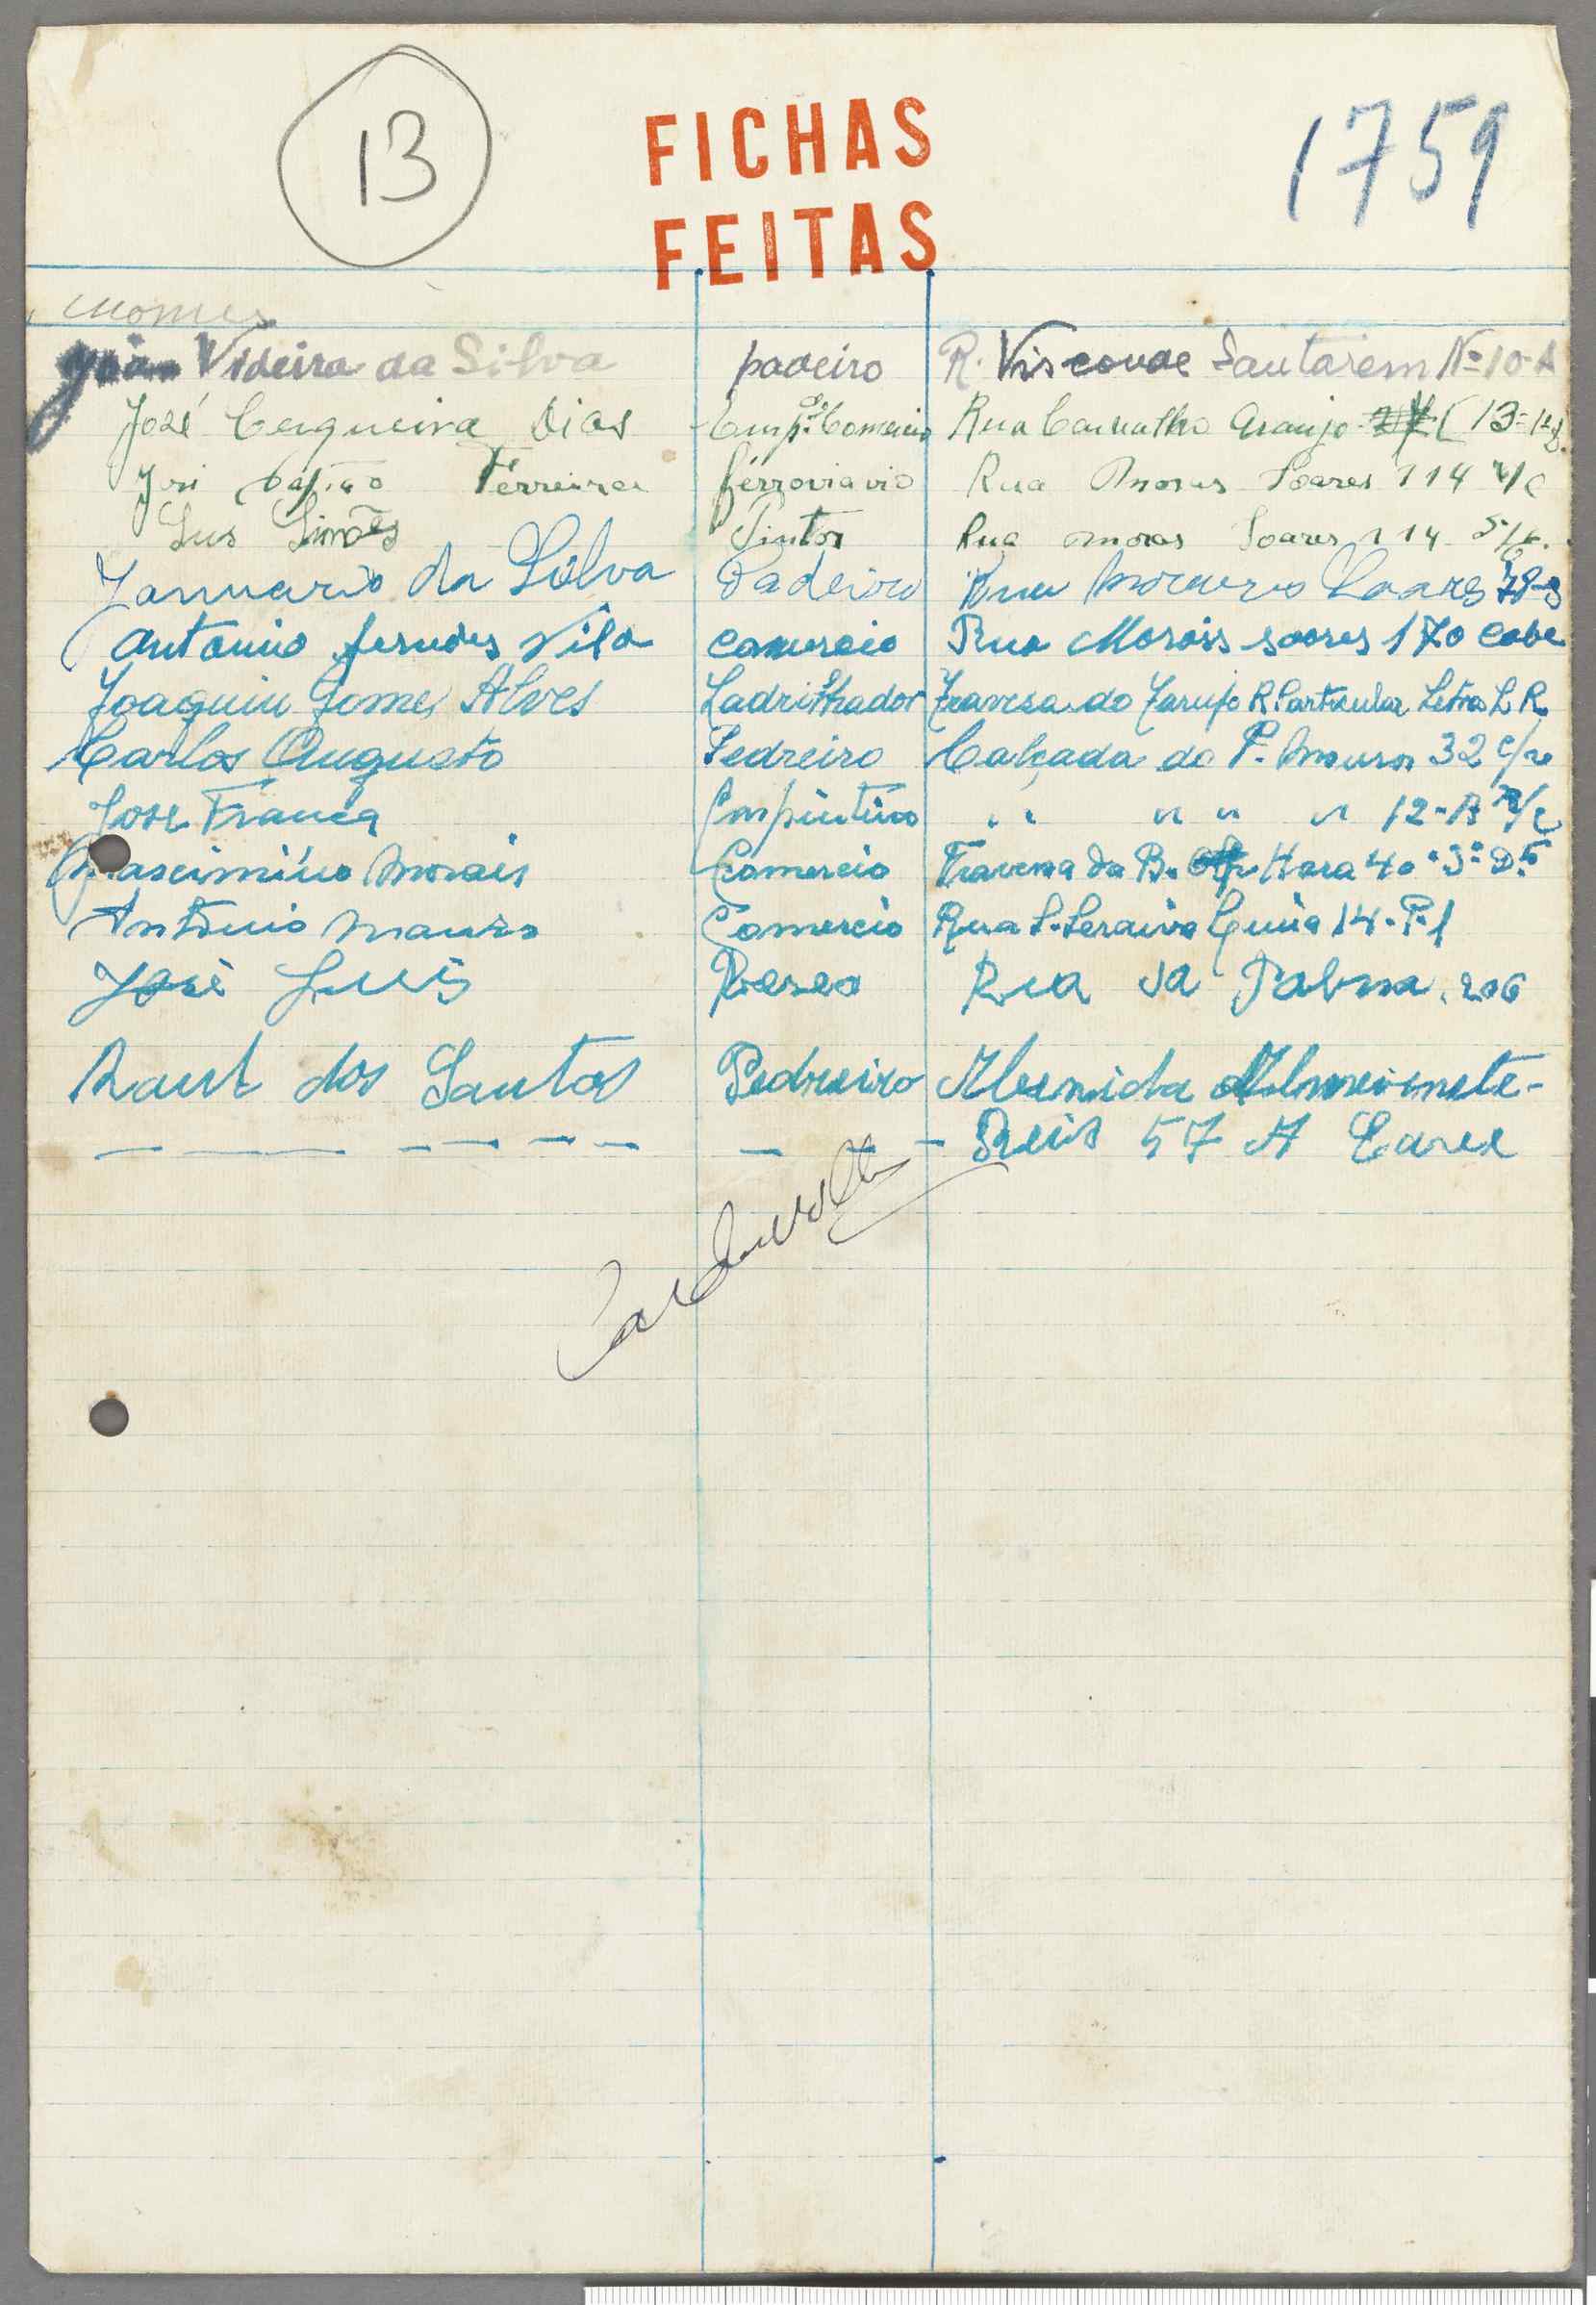 13
1759
FICHAS
FEITAS
nomes
João Videira da Silva padeiro R. Visconde Santarem Nº 10-A
José Cerqueira Dias Empº Comercio Rua Carvalho Araujo 13-1º
José Ferreira ferroviario Rua Morais Soares 114 r/c
Luis Simões Pintor Rua morais Soares 114
Januario da Silva Padeiro Rua Soares
Antonio Vila comercio Rua Morais soares 170 cave
Joaquim Gomes Alves Ladrilhador Travesa do R. Particular Letra L R
Carlos Augusto Pedreiro Calçada do P. Mouro 32 c/v
José França Carpinteiro " " " " 12-B R/c
Morais Comercio Travessa da Hora 40-3º Dtº
Antonio Mauro Comercio Rua 14-
José Luis Rua da Palma, 206
Raul dos Santos Pedreiro Abenida Almeirnete-
— — — — — — — — Reis 57 A Cave